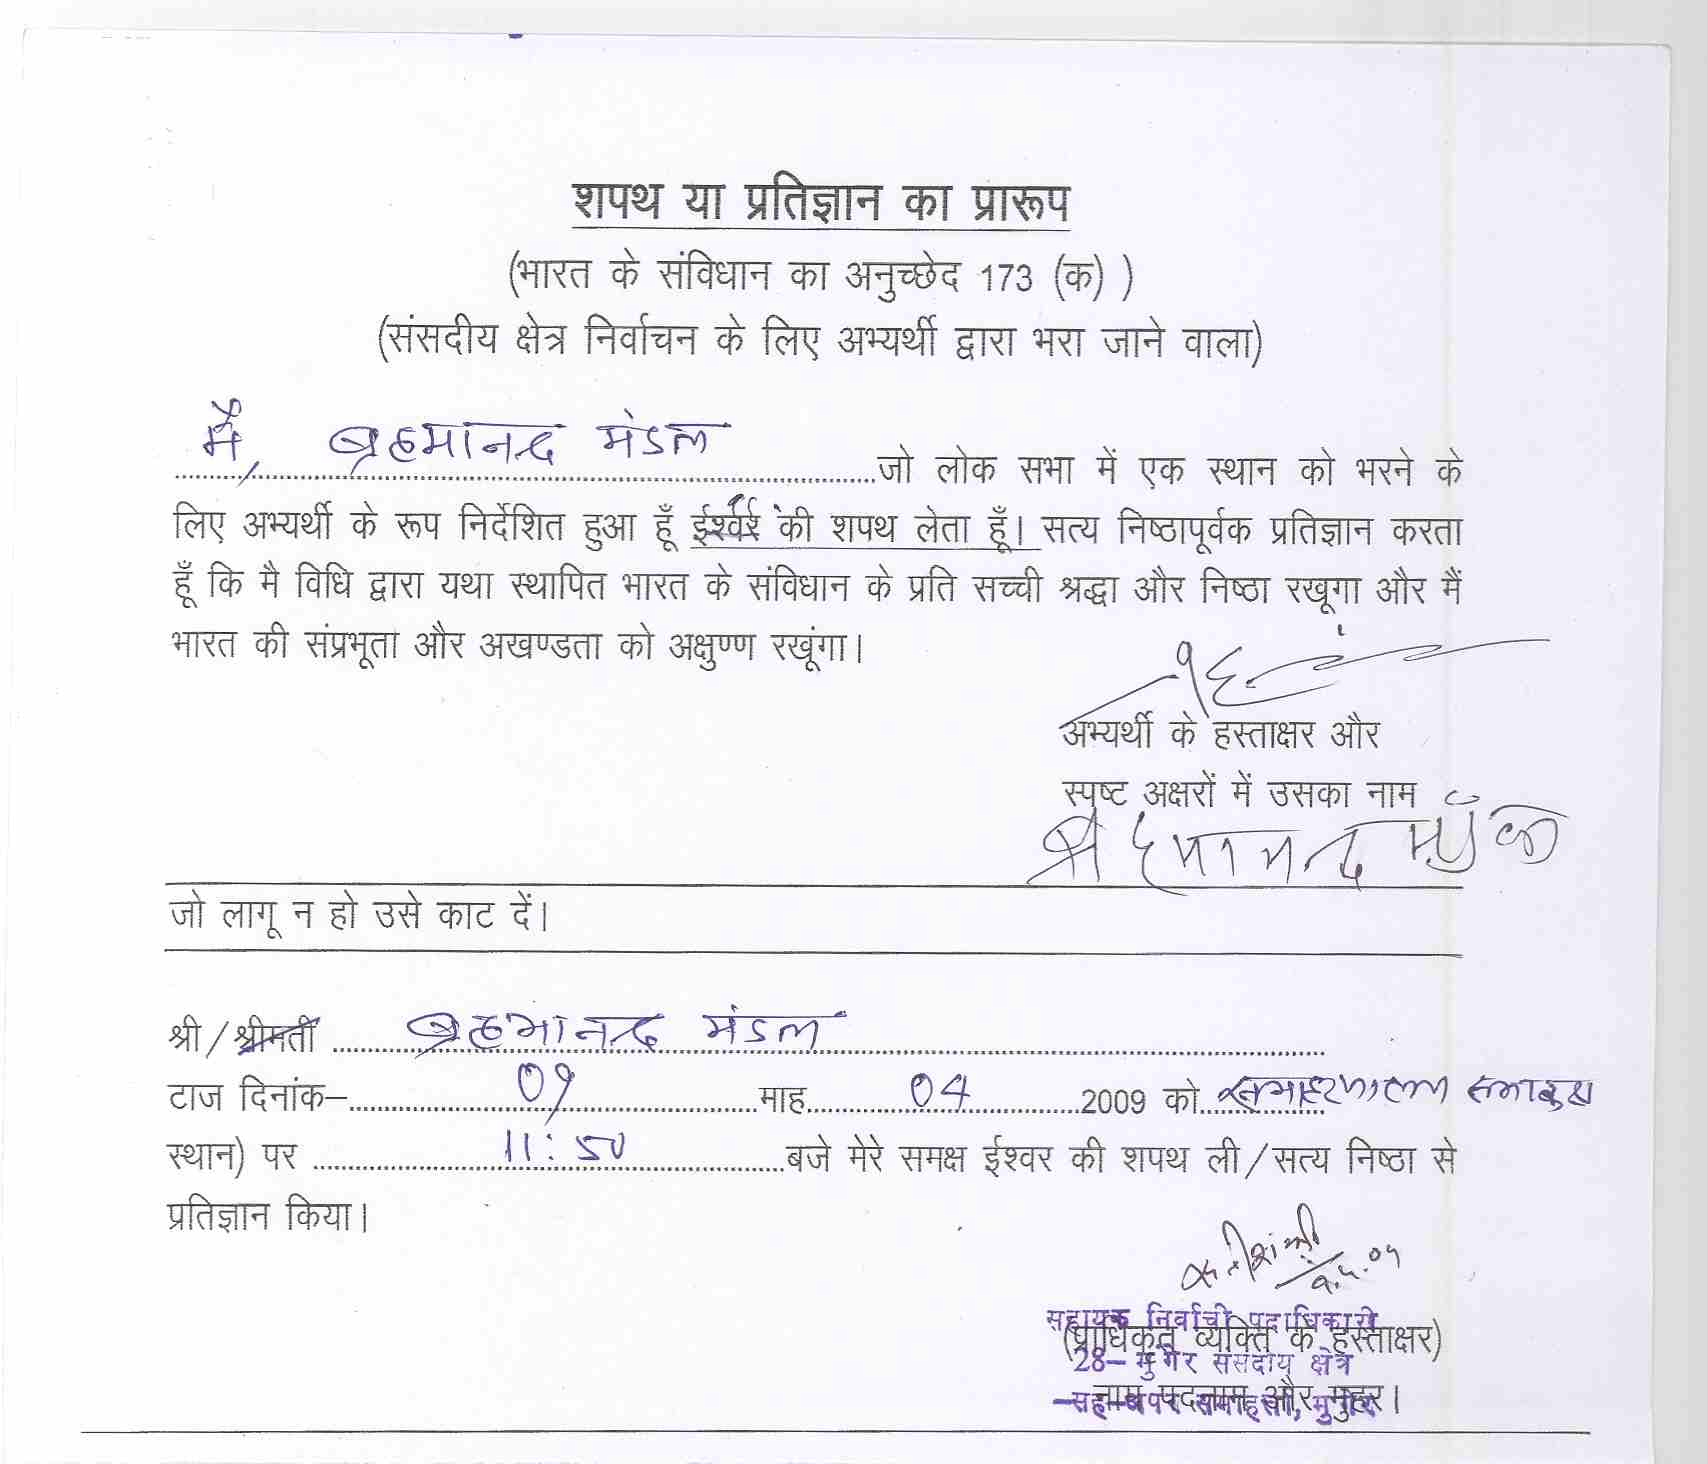 शपथ या प्रतिज्ञान का प्रारूप
(भारत के संविधान का अनुच्छेद 173 (क) )
(संसदीय क्षेत्र निर्वाचन के लिए अभ्यर्थी द्वारा भरा जाने वाला)
मै, ब्रहमानन्द मंडल जो लोक सभा में एक स्थान को भरने के
लिए अभ्यर्थी के रूप निर्देशित हुआ हूँ ईश्वर की शपथ लेता हूँ। सत्य निष्ठापूर्वक प्रतिज्ञान करता
हूँ कि मै विधि द्वारा यथा स्थापित भारत के संविधान के प्रति सच्ची श्रद्धा और निष्ठा रखूगा और मैं
भारत की संप्रभूता और अखण्डता को अक्षुण्ण रखूंगा।
अभ्यर्थी के हस्ताक्षर और
स्पष्ट अक्षरों में उसका नाम
ब्रहमानन्द मंडल
जो लागू न हो उसे काट दें।
श्री/श्रीमती ब्रहमानन्द मंडल
टाज दिनांक– 09 माह 04 2009 को
स्थान) पर 11:50 बजे मेरे समक्ष ईश्वर की शपथ ली/सत्य निष्ठा से
प्रतिज्ञान किया।
सहायक निर्वाची पदाधिकारी
(प्राधिकृत व्यक्ति के हस्ताक्षर)
28– मुंगेर संसदीय क्षेत्र
नाम पदनाम और मुहर।